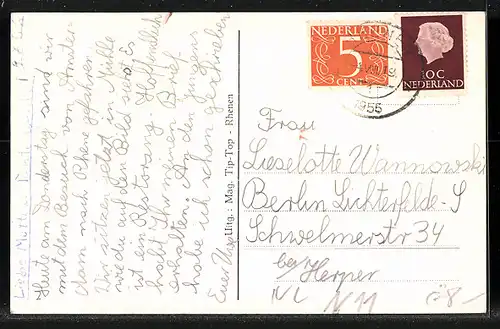 Liebe Mutti
Heute am Donnerstag sind wir
mit dem Besuch von Amster-
dam nach Rhene gefahren
Wir sitzen jetzt in Mühle
wie die auf dem Bild siest. Es
ist ein Restorang. Hoffendlich
habt Ihr meinen Brief
erhalten. An den Jungens
habe ich schon geschrieben
Euer
Uitg.: Mag. Tip-Top - Rhenen
NEDERLAND
5
CENT
10C
NEDERLAND
1955
Frau
Lieselotte Wannowski
Berlin Lichterfelde-S
Schwelmerstr 34
bei Herper
NL N11 28-